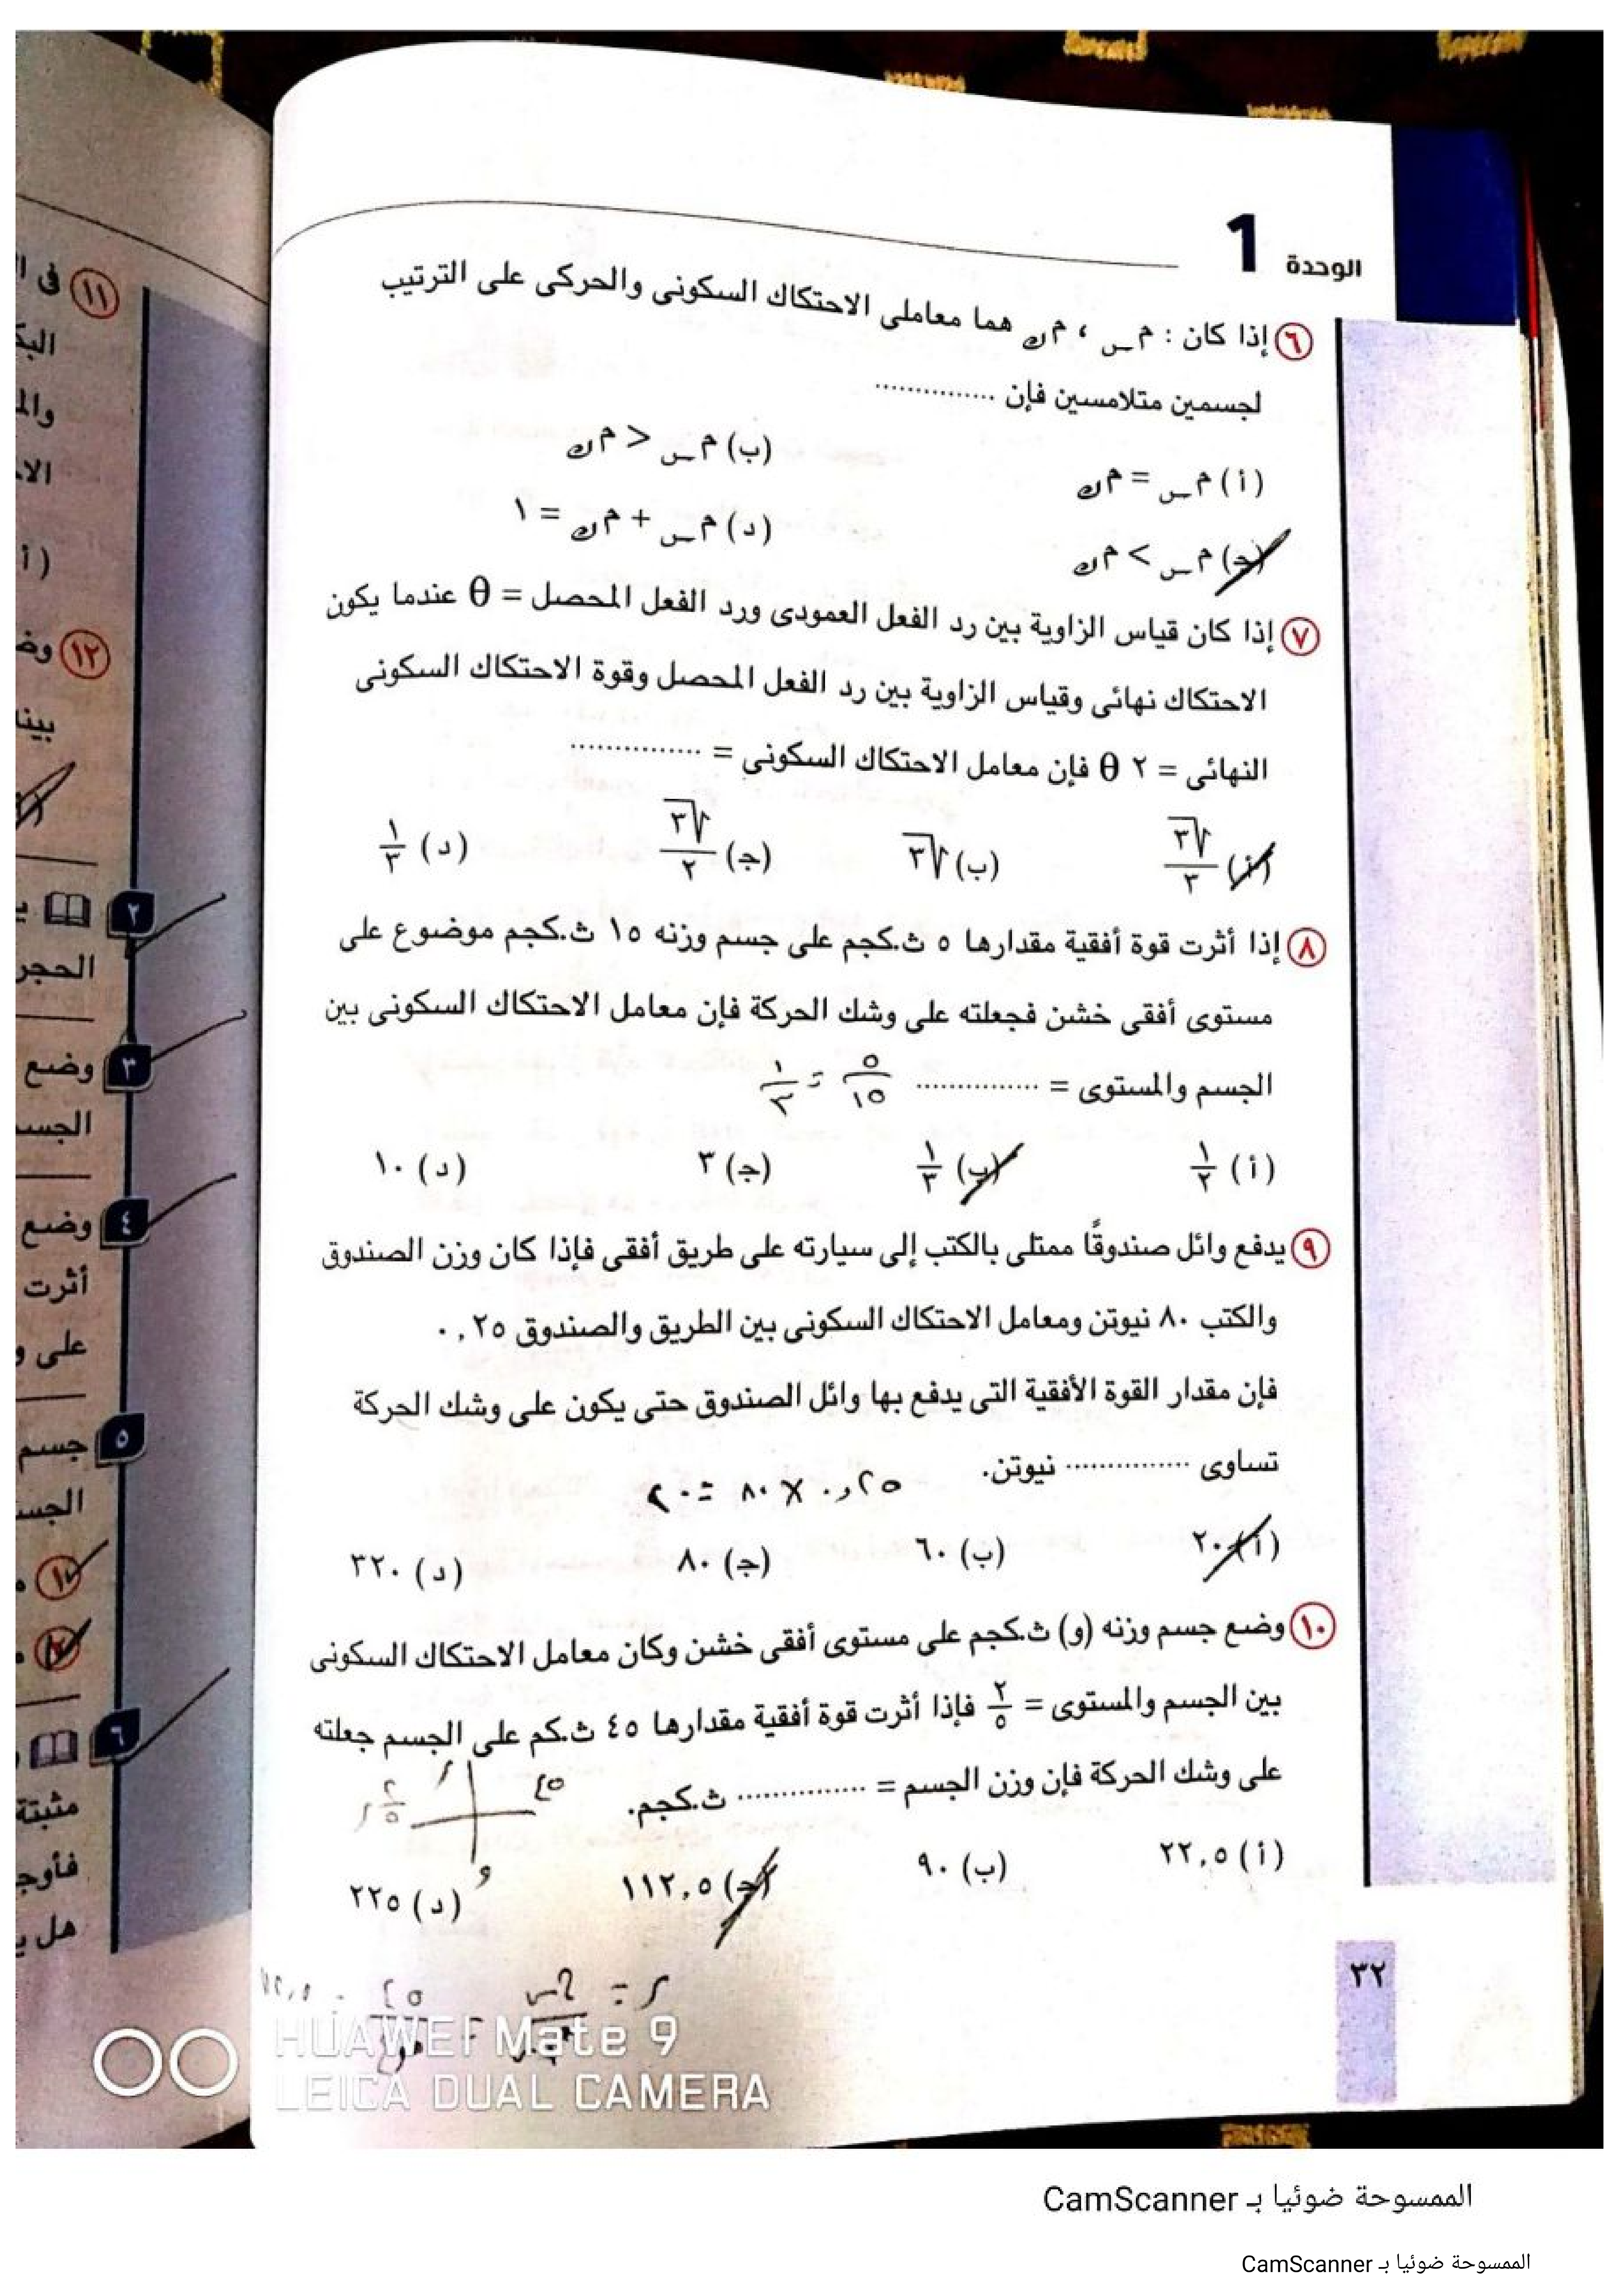 الوحدة 1
٦ إذا كان : م س ، م ك هما معاملى الاحتكاك السكونى والحركى على الترتيب
لجسمين متلامسين فإن ..............
(أ) م س = م ك
(ب) م س < م ك
(ج) م س > م ك
(د) م س + م ك = ١
٧ إذا كان قياس الزاوية بين رد الفعل العمودى ورد الفعل المحصل = θ عندما يكون
الاحتكاك نهائى وقياس الزاوية بين رد الفعل المحصل وقوة الاحتكاك السكونى
النهائى = ٢ θ فإن معامل الاحتكاك السكونى = ...............
(أ) √٣/٣ (ب) √٣ (ج) √٣/٢ (د) ١/٣
٨ إذا أثرت قوة أفقية مقدارها ٥ ث.كجم على جسم وزنه ١٥ ث.كجم موضوع على
مستوى أفقى خشن فجعلته على وشك الحركة فإن معامل الاحتكاك السكونى بين
الجسم والمستوى = .............. ٥/١٥ = ١/٣
(أ) ١/٢ (ب) ١/٣ (ج) ٣ (د) ١٠
٩ يدفع وائل صندوقًا ممتلى بالكتب إلى سيارته على طريق أفقى فإذا كان وزن الصندوق
والكتب ٨٠ نيوتن ومعامل الاحتكاك السكونى بين الطريق والصندوق ٠,٢٥
فإن مقدار القوة الأفقية التى يدفع بها وائل الصندوق حتى يكون على وشك الحركة
تساوى .............. نيوتن.
٠,٢٥ × ٨٠ = ٢٠
(أ) ٢٠ (ب) ٦٠ (ج) ٨٠ (د) ٣٢٠
١٠ وضع جسم وزنه (و) ث.كجم على مستوى أفقى خشن وكان معامل الاحتكاك السكونى
بين الجسم والمستوى = ٢/٥ فإذا أثرت قوة أفقية مقدارها ٤٥ ث.كم على الجسم جعلته
على وشك الحركة فإن وزن الجسم = .............. ث.كجم.
٤٥
و
(أ) ٢٢,٥ (ب) ٩٠ (ج) ١١٢,٥ (د) ٢٢٥
٣٢
١١ فى
١٢
٢
الحجر
٣ وضع
٤ وضع
أثرت
على
٥ جسم
١
٢
٦
مثبتة
هل
HUAWEI Mate 9
LEICA DUAL CAMERA
الممسوحة ضوئيا بـ CamScanner
الممسوحة ضوئيا بـ CamScanner